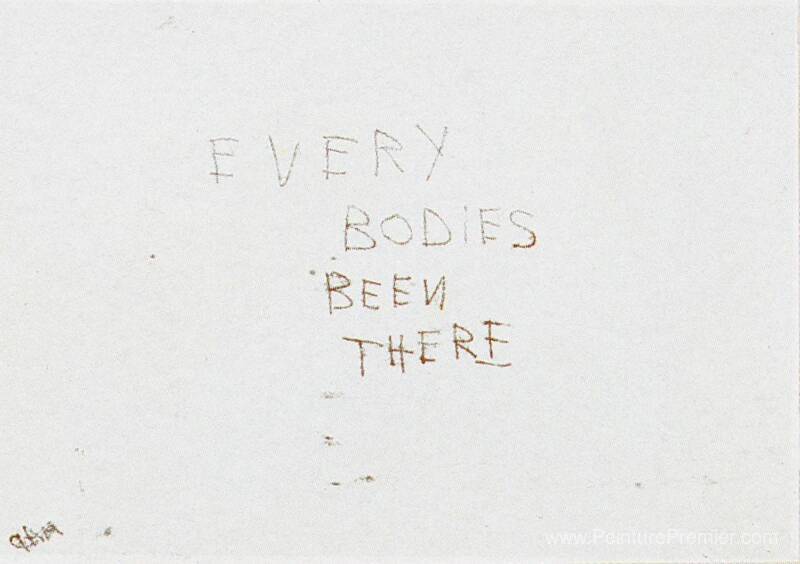 EVERY
BODIES
BEEN
THERE
www.PeinturePremier.com